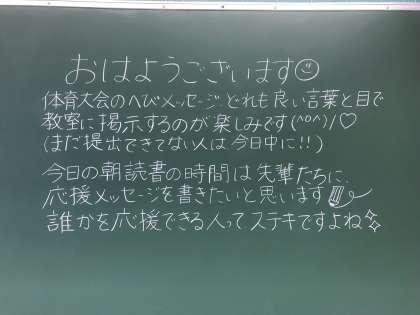 おはようございます☺
体育大会のへびメッセージ、どれも良い言葉と目で
教室に掲示するのが楽しみです(^o^)/♡
(まだ提出できてない人は今日中に!!)
今日の朝読書の時間は先輩たちに、
応援メッセージを書きたいと思います
誰かを応援できる人って、ステキですよね